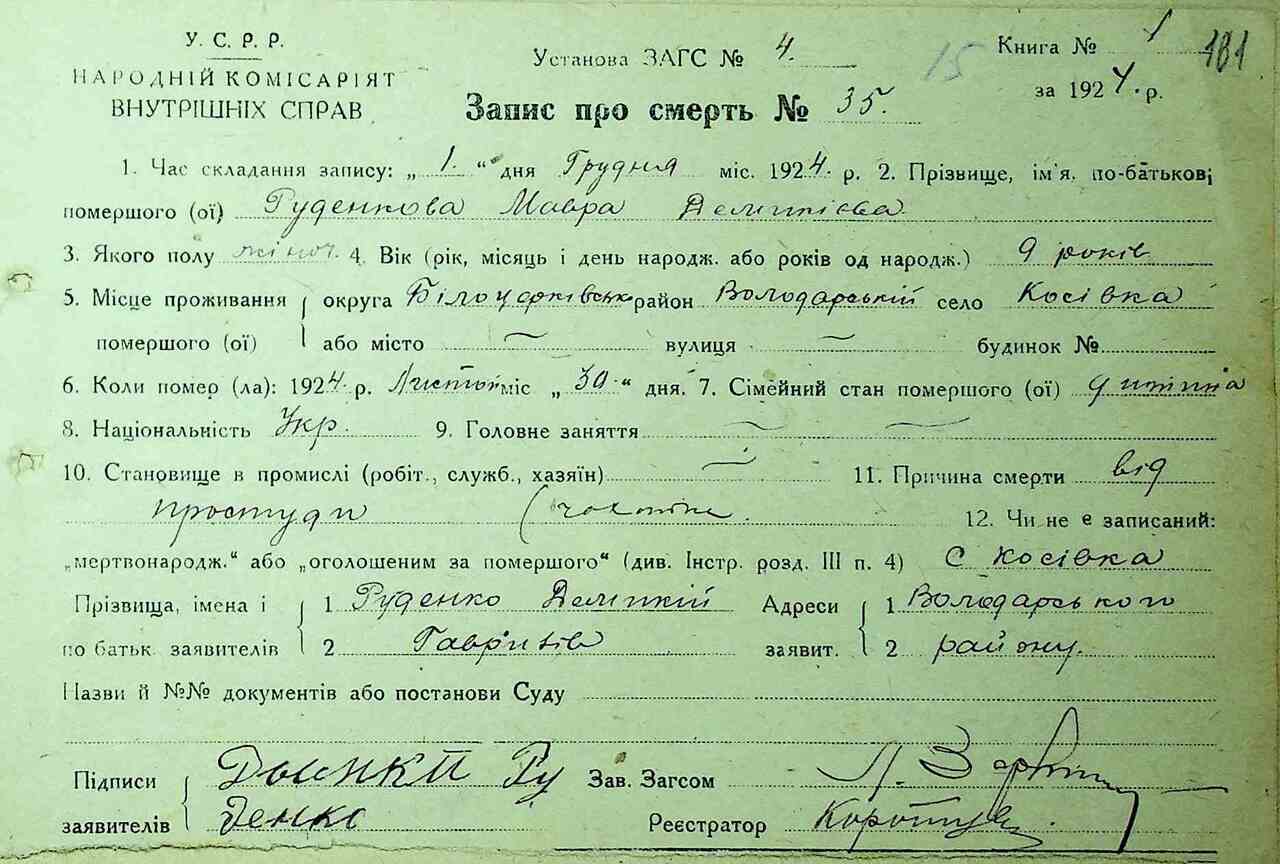 У. С. Р. Р.
НАРОДНІЙ КОМІСАРІЯТ
ВНУТРІШНІХ СПРАВ
Установа ЗАГС № 4.
15
Книга № 1
181
за 1924. р.
Запис про смерть № 35.
1. Час складання запису: „ 1. “ дня Грудня міс. 1924. р. 2. Прізвище, ім'я, по-батькові
помершого (ої) Руденкова Мавра
3. Якого полу жіноч. 4. Вік (рік, місяць і день народж. або років од народж.) 9 років
5. Місце проживання округа Білоцерківськ район Володарській село Косівка
помершого (ої) або місто — вулиця — будинок №
6. Коли помер (ла): 1924. р. Листоп міс „ 30. “ дня. 7. Сімейний стан помершого (ої) дитина
8. Національність Укр. 9. Головне заняття — —
10. Становище в промислі (робіт., служб., хазяїн) — 11. Причина смерти від
простуди 12. Чи не є записаний:
„мертвонародж.“ або „оголошеним за помершого“ (див. Інстр. розд. III п. 4) С Косівка
Прізвища, імена і 1 Руденко Адреси 1 Володарського
по батьк. заявителів 2 заявит. 2 району.
Назви й №№ документів або постанови Суду
Підписи Ру Зав. Загсом
заявителів денко Реєстратор